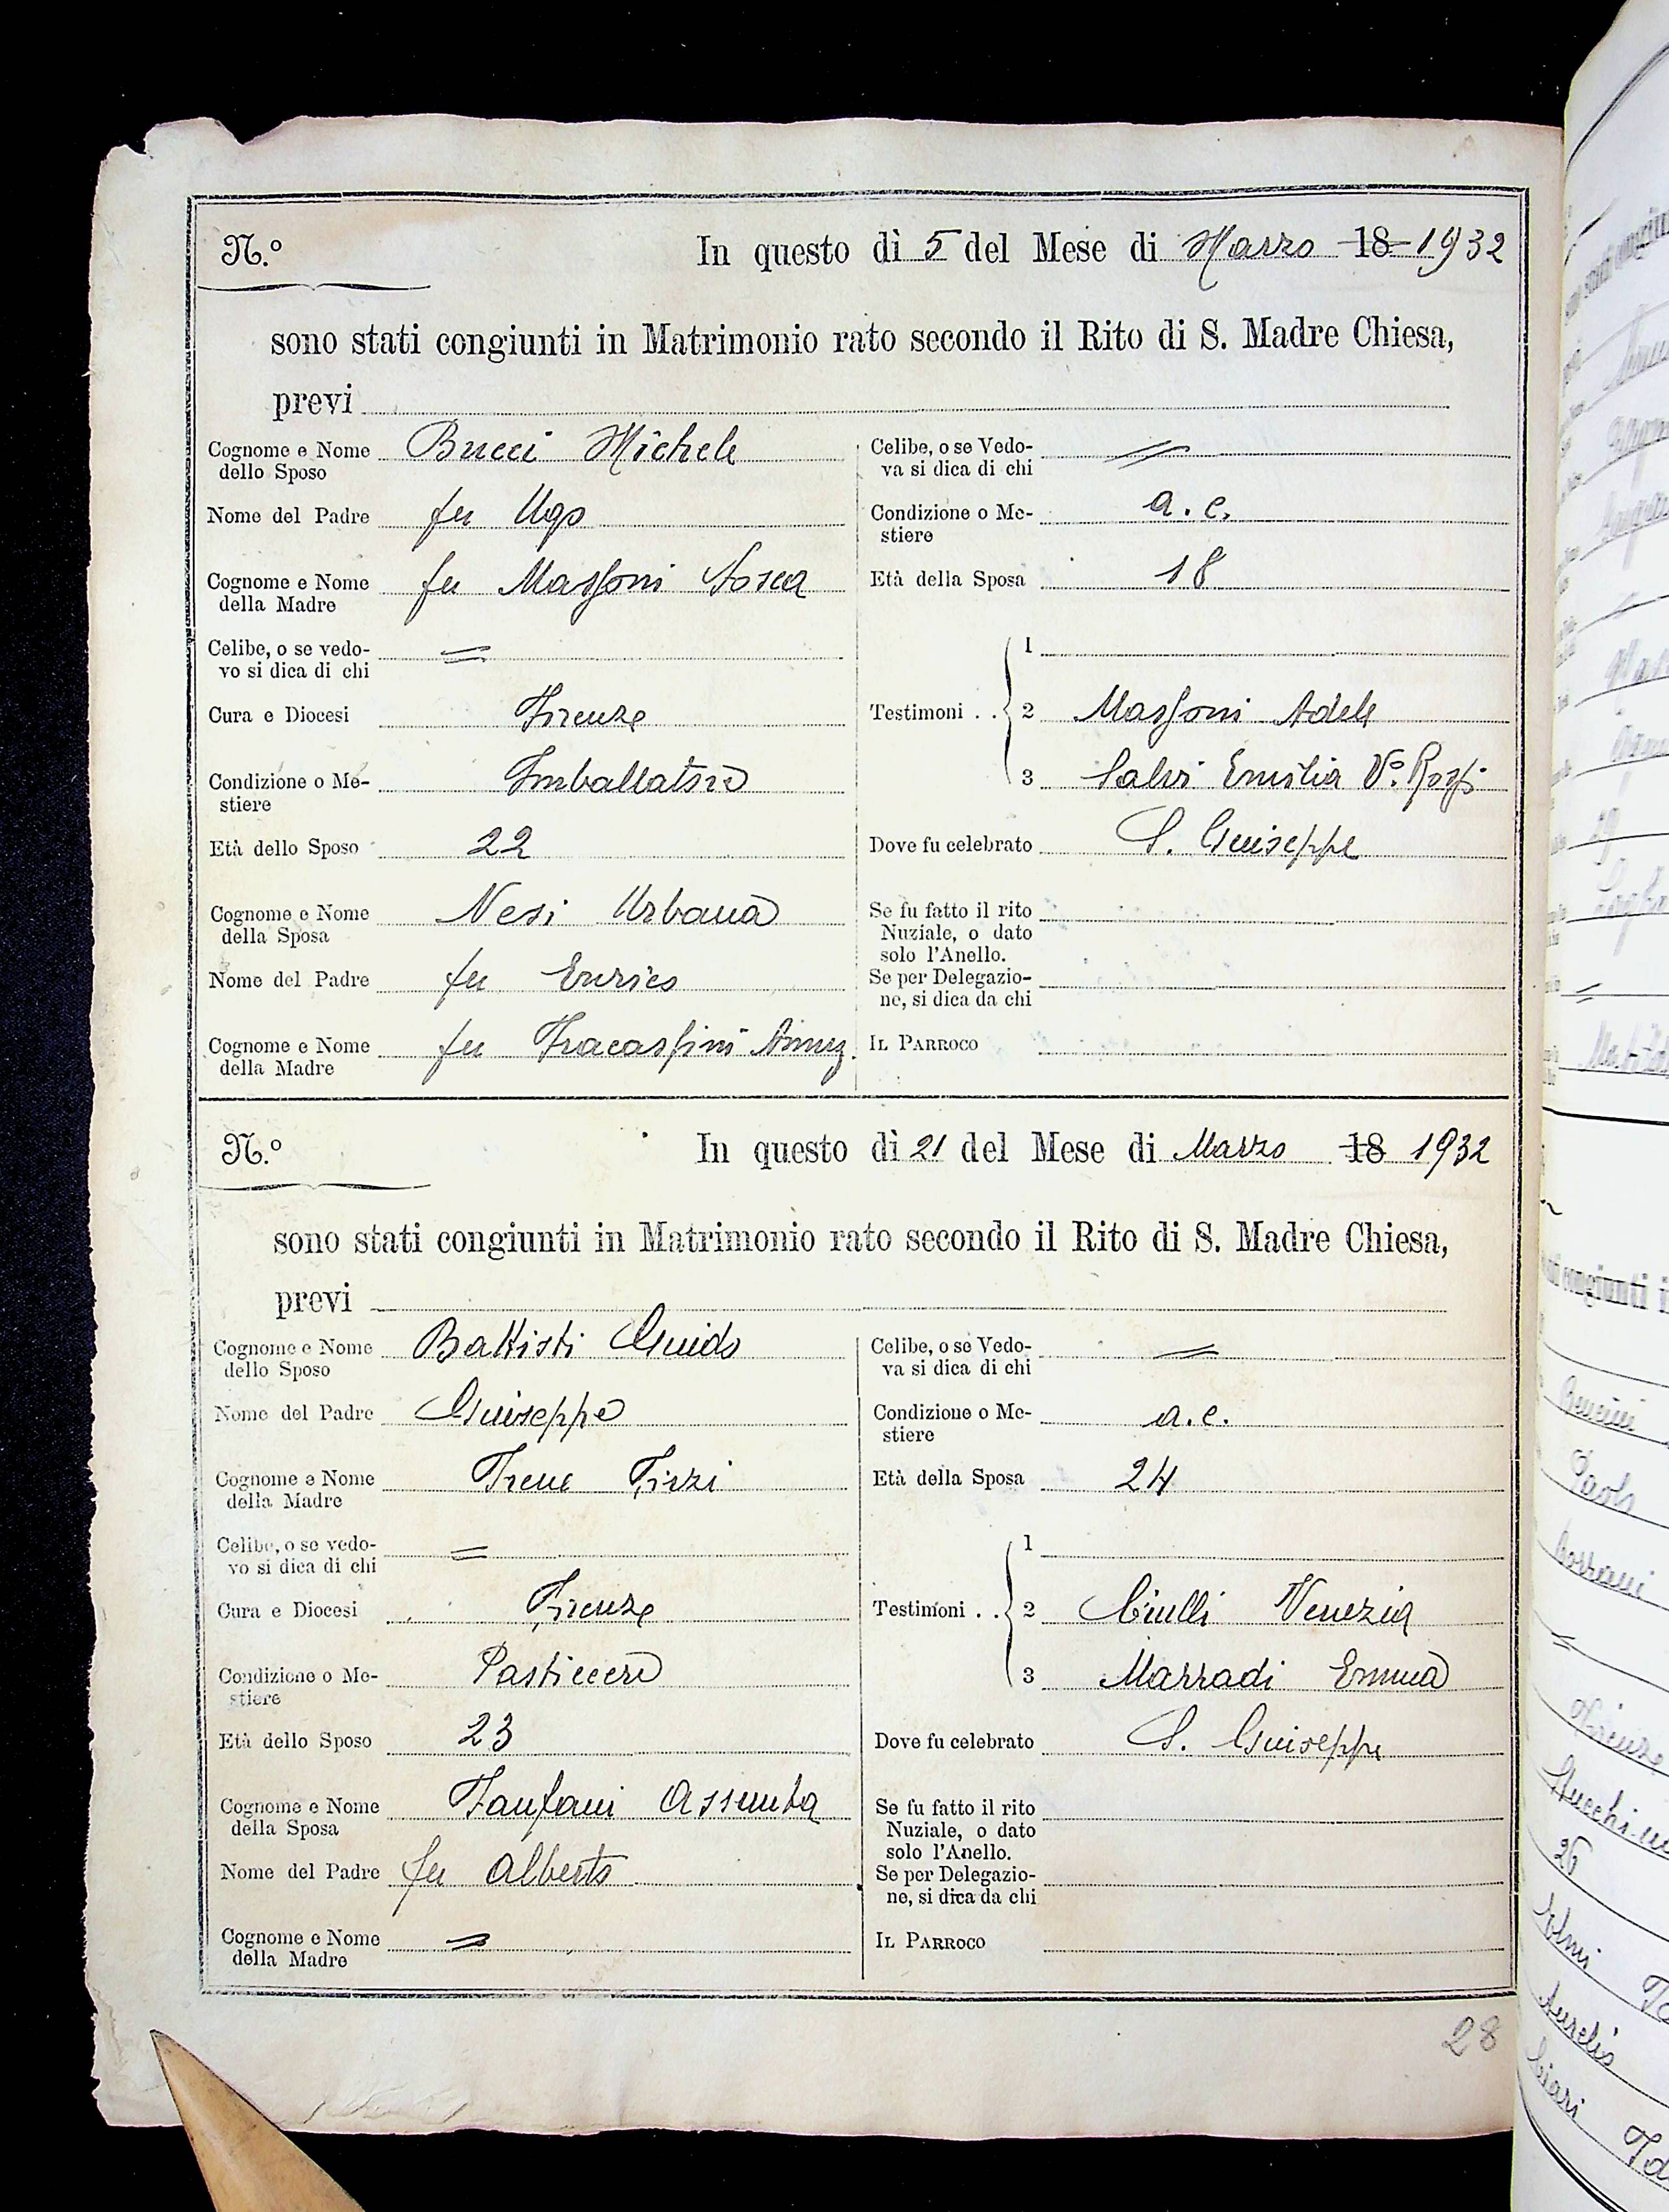 N.º In questo dì 5 del Mese di Marzo 18 1932
sono stati congiunti in Matrimonio rato secondo il Rito di S. Madre Chiesa,
previ
Cognome e Nome dello Sposo Bucci Michele
Nome del Padre fu Ugo
Cognome e Nome della Madre fu Massoni
Celibe, o se vedovo si dica di chi =
Cura e Diocesi Firenze
Condizione o Mestiere Imballatore
Età dello Sposo 22
Cognome e Nome della Sposa Nesi Urbana
Nome del Padre fu Enrico
Cognome e Nome della Madre fu Fracassini Annuz.
Celibe, o se Vedova si dica di chi =
Condizione o Mestiere a. c.
Età della Sposa 18
Testimoni . . 1
2 Massoni Adele
3 Salvi Emilia Vª. Rossi
Dove fu celebrato S. Giuseppe
Se fu fatto il rito Nuziale, o dato solo l'Anello.
Se per Delegazione, si dica da chi
IL PARROCO
N.º In questo dì 21 del Mese di Marzo 18 1932
sono stati congiunti in Matrimonio rato secondo il Rito di S. Madre Chiesa,
previ
Cognome e Nome dello Sposo Battisti Guido
Nome del Padre Giuseppe
Cognome e Nome della Madre Irene Tizzi
Celibe, o se vedovo si dica di chi =
Cura e Diocesi Firenze
Condizione o Mestiere Pasticcere
Età dello Sposo 23
Cognome e Nome della Sposa Fanfani Assunta
Nome del Padre fu Alberto
Cognome e Nome della Madre =
Celibe, o se Vedova si dica di chi =
Condizione o Mestiere a. c.
Età della Sposa 24
Testimoni . . 1
2 Ciulli Venezia
3 Marradi Emma
Dove fu celebrato S. Giuseppe
Se fu fatto il rito Nuziale, o dato solo l'Anello.
Se per Delegazione, si dica da chi
IL PARROCO
28